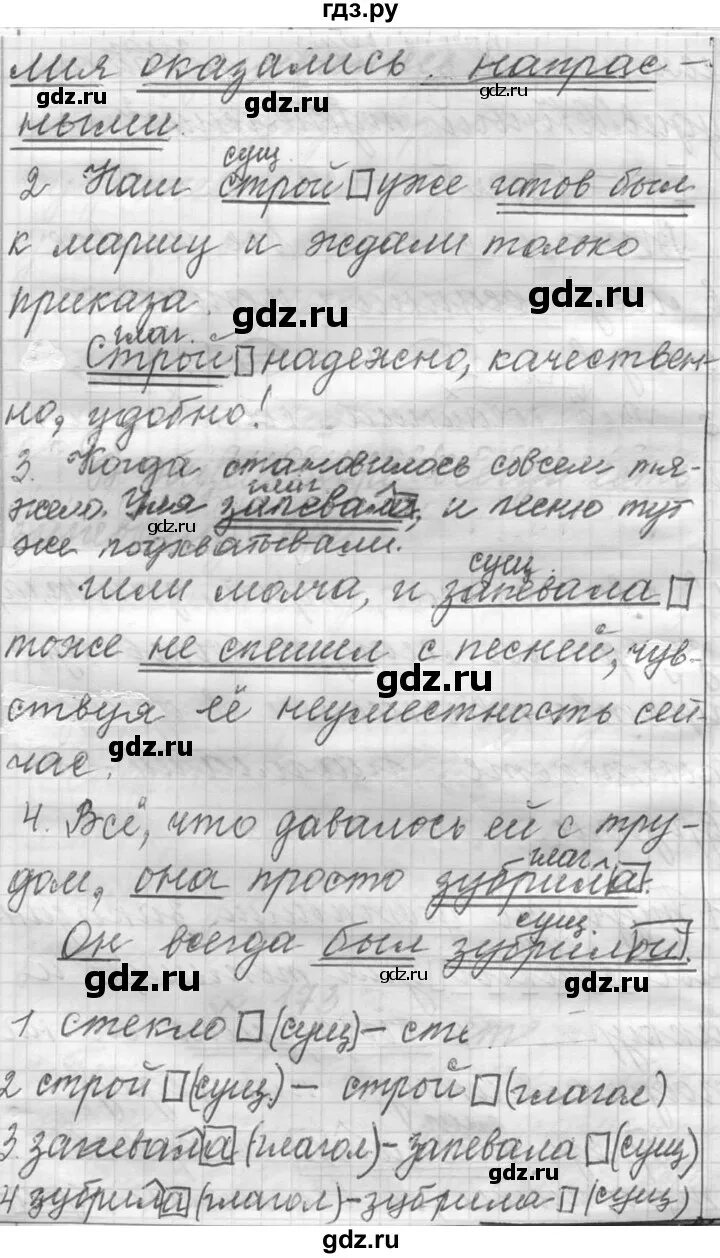 гдз.ру
лия оказались напрас-
gdz.ru gdz.ru gdz.ru
ными.
сущ.
2. Наш строй уже готов был
к маршу и ждали только
приказа.
gdz.ru gdz.ru
глаг.
Строй надежно, качествен-
но, удобно!
3. Когда становилось совсем тя-
глаг
жело. Уля запевала, и песню тут
gdz.ru gdz.ru
же подхватывали.
сущ.
Шли молча, и запевала
тоже не спешил с песней, чув-
gdz.ru
ствуя её неуместность сей-
gdz.ru
час.
4. Всё, что давалось ей с тру-
глаг
дом, она просто зубрила.
сущ.
Он всегда был зубрилой.
gdz.ru gdz.ru gdz.ru
1. стекло (сущ) – сте
2 строй (сущ.) – строй (глагол)
3. запевала (глагол) – запевала (сущ)
gdz.ru gdz.ru
4 зубрила (глагол) – зубрила (сущ)
гдз.ру